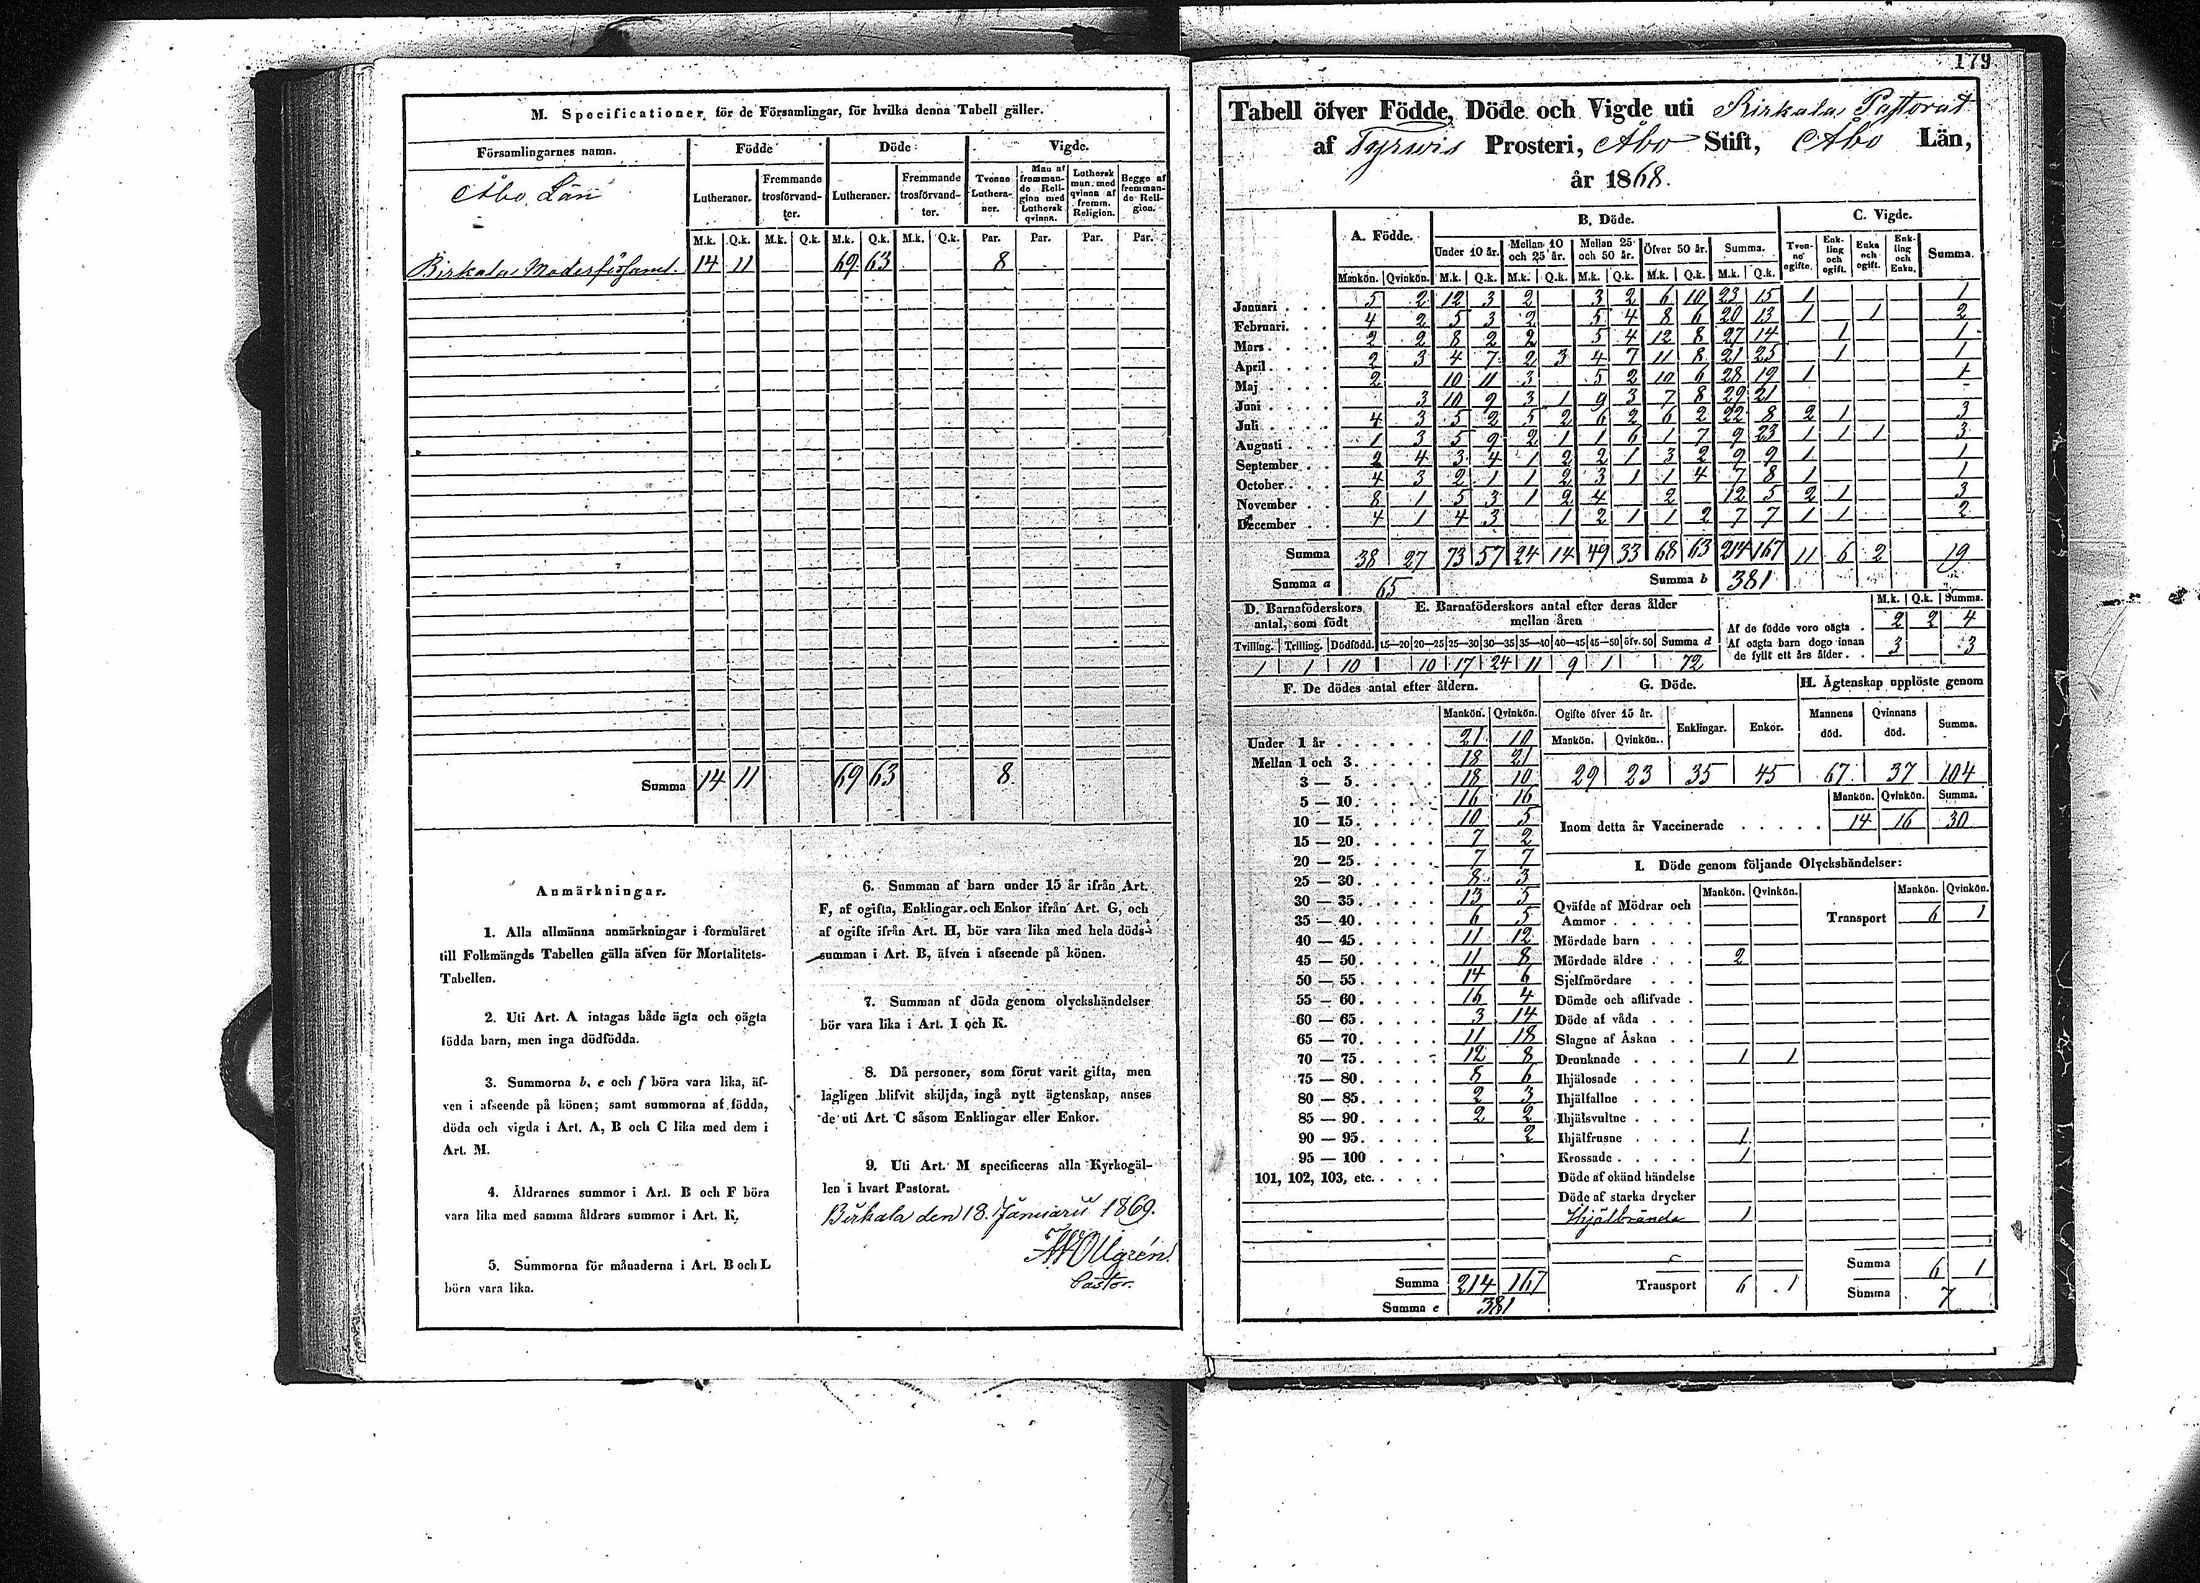 M. Specificationer för de Församlingar, för hvilka denna Tabell gäller.
Församlingarnes namn. Födde Döde Vigde.
Lutheraner. Fremmande trosförvandter. Lutheraner. Fremmande trosförvandter. Tvenne Lutheraner. Man af fremmande Religion med Luthersk qvinna. Luthersk man med qvinna af fremm. Religion. Begge af fremmande Religion.
Åbo Län
M.k. Q.k. M.k. Q.k. M.k. Q.k. M.k. Q.k. Par. Par. Par. Par.
Birkala Moderförsaml. 14 11 69 63 8
Summa 14 11 69 63 8.
Anmärkningar.
1. Alla allmänna anmärkningar i formuläret
till Folkmängds Tabellen gälla äfven för Mortalitets-
Tabellen.
2. Uti Art. A intagas både ägta och oägta
födda barn, men inga dödfödda.
3. Summorna b, e och f böra vara lika, äf-
ven i afseende på könen; samt summorna af födda,
döda och vigda i Art. A, B och C lika med dem i
Art. M.
4. Åldrarnes summor i Art. B och F böra
vara lika med samma åldrars summor i Art. K.
5. Summorna för månaderna i Art. B och L
böra vara lika.
6. Summan af barn under 15 år ifrån Art.
F, af ogifta, Enklingar och Enkor ifrån Art. G, och
af ogifte ifrån Art. H, bör vara lika med hela döds-
summan i Art. B, äfven i afseende på könen.
7. Summan af döda genom olyckshändelser
bör vara lika i Art. I och K.
8. Då personer, som förut varit gifta, men
lagligen blifvit skiljda, ingå nytt ägtenskap, anses
de uti Art. C såsom Enklingar eller Enkor.
9. Uti Art. M specificeras alla Kyrkogäl-
len i hvart Pastorat.
Birkala den 18. Januarii 1869.
Pastor.
179
Tabell öfver Födde, Döde och Vigde uti Birkala Pastorat
af Tyrwis Prosteri, Åbo Stift, Åbo Län,
år 1868.
A. Födde. B. Döde. C. Vigde.
Under 10 år. Mellan 10 och 25 år. Mellan 25 och 50 år. Öfver 50 år. Summa. Tvenne ogifte. Enkling och ogift. Enka och ogift. Enkling och Enka. Summa.
Mankön. Qvinkön. M.k. Q.k. M.k. Q.k. M.k. Q.k. M.k. Q.k. M.k. Q.k.
Januari 5 2 12 3 2 3 2 6 10 23 15 1 1
Februari. 4 2 5 3 2 5 4 8 6 20 13 1 1 2
Mars 2 2 8 2 2 5 4 12 8 27 14 1 1
April 2 3 4 7 2 3 4 7 11 8 21 25 1 1
Maj 2 10 11 3 5 2 10 6 28 19 1 1
Juni 3 10 9 3 1 9 3 7 8 29 21 -
Juli 4 3 5 2 5 2 6 2 6 2 22 8 2 1 3
Augusti 1 3 5 9 2 1 1 6 1 7 9 23 1 1 1 3
September 2 4 3 4 1 2 2 1 3 2 9 9 1 1
October 4 3 2 1 1 2 3 1 1 4 7 8 1 1
November 8 1 5 3 1 2 4 2 12 5 2 1 3
December 4 1 4 3 1 2 1 1 2 7 7 1 1 2
Summa 38 27 73 57 24 14 49 33 68 63 214 167 11 6 2 19
Summa a 65 Summa b 381
D. Barnaföderskors antal, som födt
Tvilling. Trilling. Dödfödd.
1 1 10
E. Barnaföderskors antal efter deras ålder mellan åren
15—20 20—25 25—30 30—35 35—40 40—45 45—50 öfv. 50 Summa d
10 17 24 11 9 1 72
M.k. Q.k. Summa.
Af de födde voro oägta 2 2 4
Af oägta barn dogo innan de fyllt ett års ålder 3 3
F. De dödes antal efter åldern.
Mankön. Qvinkön.
Under 1 år 21 10
Mellan 1 och 3. 18 21
3 — 5. 18 10
5 — 10. 16 16
10 — 15. 10 5
15 — 20. 7 2
20 — 25. 7 7
25 — 30. 8 3
30 — 35. 13 5
35 — 40. 6 5
40 — 45. 11 12
45 — 50. 11 8
50 — 55. 14 6
55 — 60. 16 4
60 — 65. 3 14
65 — 70. 11 18
70 — 75. 12 8
75 — 80. 8 6
80 — 85. 2 3
85 — 90. 2 2
90 — 95. 2
95 — 100
101, 102, 103, etc.
Summa 214 167
Summa e 381
G. Döde. H. Ägtenskap upplöste genom
Ogifte öfver 15 år. Enklingar. Enkor. Mannens död. Qvinnans död. Summa.
Mankön. Qvinkön.
29 23 35 45 67 37 104
Mankön. Qvinkön. Summa.
Inom detta år Vaccinerade 14 16 30
I. Döde genom följande Olyckshändelser:
Mankön. Qvinkön. Mankön. Qvinkön.
Qväfde af Mödrar och Ammor Transport 6 1
Mördade barn
Mördade äldre 2
Sjelfmördare
Dömde och aflifvade
Döde af våda
Slagne af Åskan
Drunknade 1 1
Ihjälosade
Ihjälfallne
Ihjälsvultne
Ihjälfrusne 1
Krossade 1
Döde af okänd händelse
Döde af starka drycker
Ihjälbrände 1
Summa 6 1
Transport 6 1 Summa 7